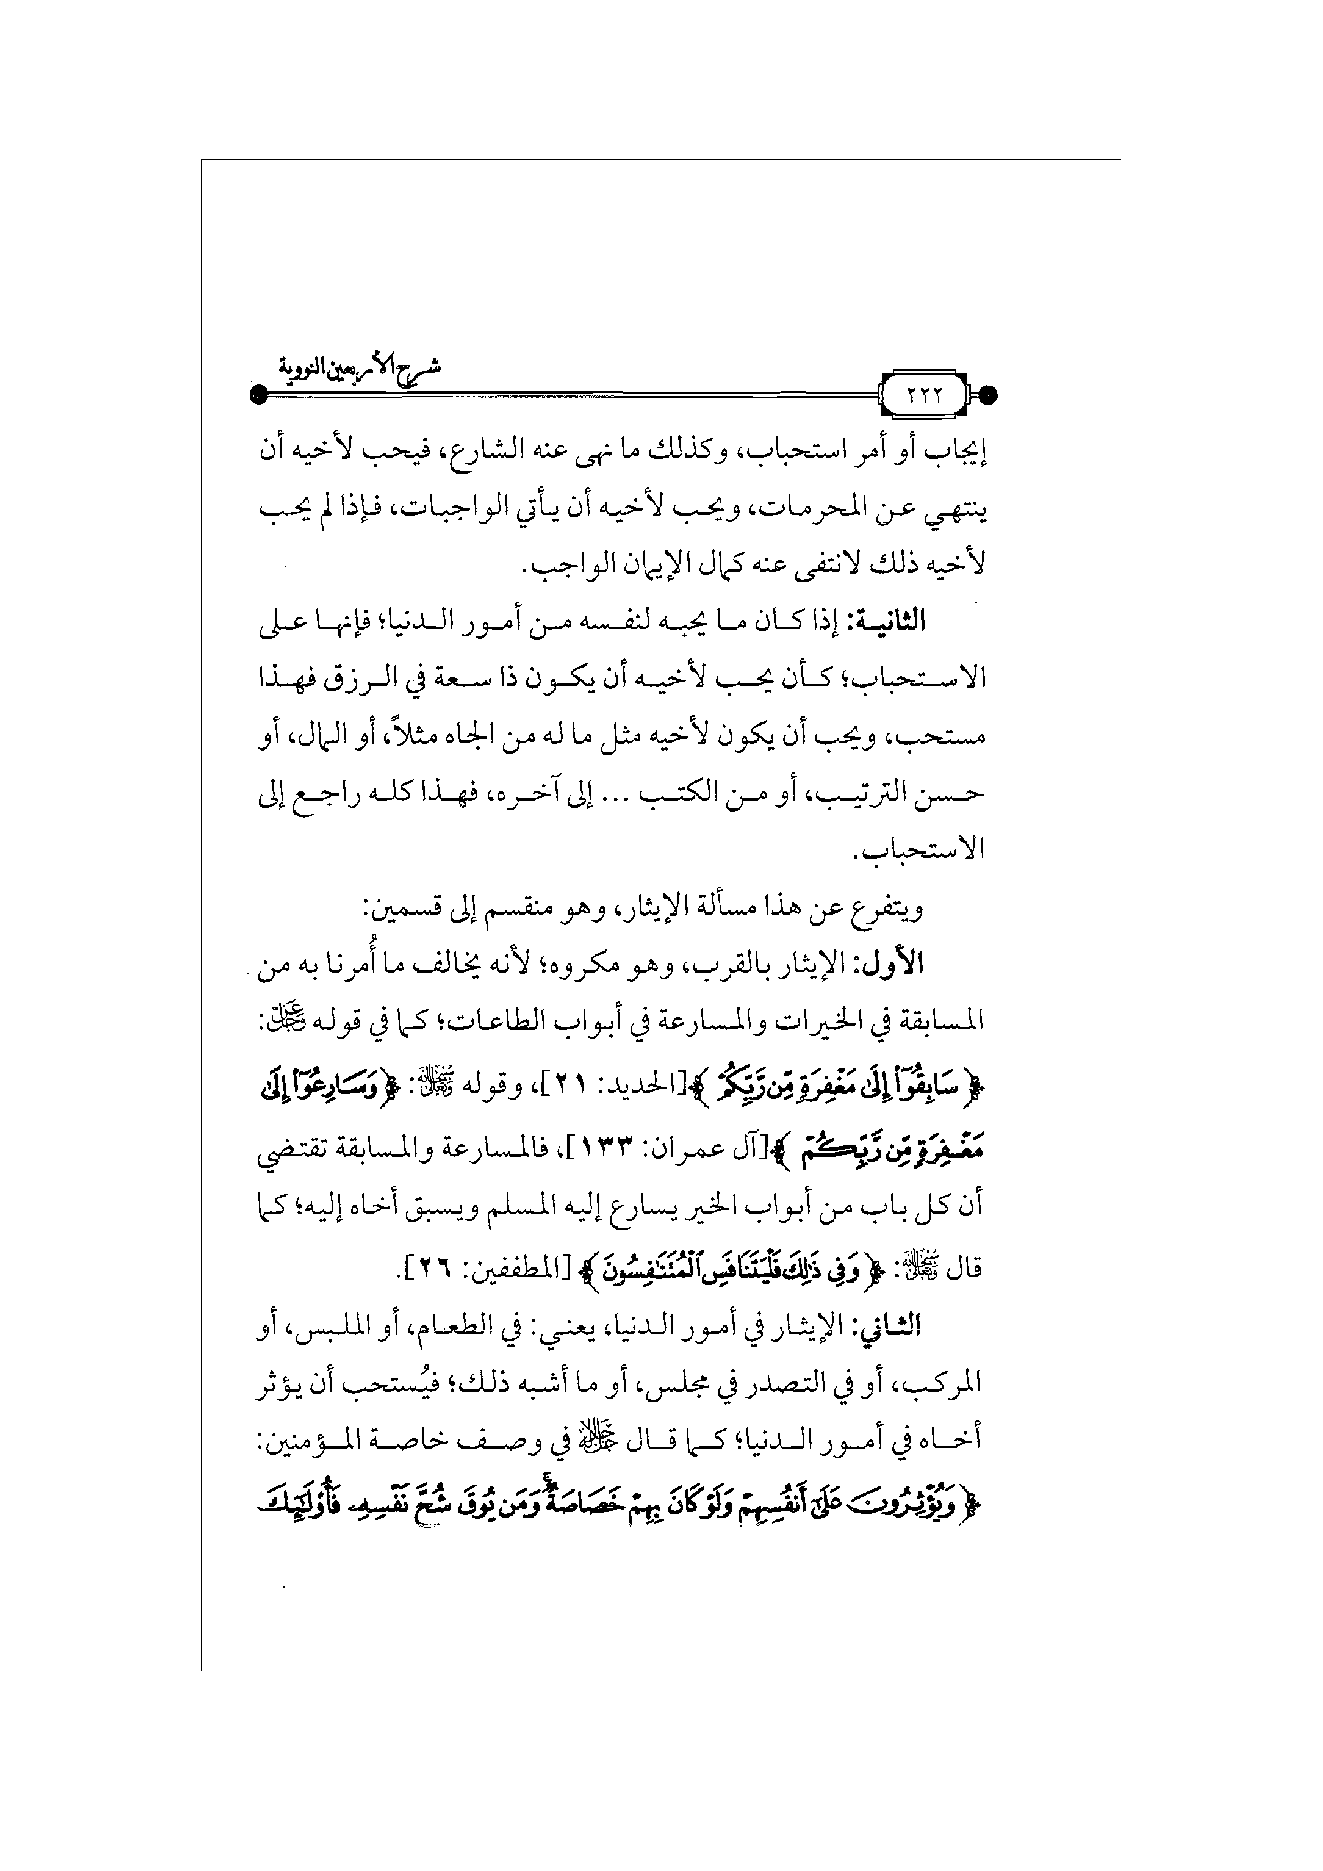 شرح الأربعين النووية
٢٢٢
إيجاب أو أمر استحباب، وكذلك ما نهى عنه الشارع، فيحب لأخيه أن
ينتهي عن المحرمات، ويحب لأخيه أن يأتي الواجبات، فإذا لم يحب
لأخيه ذلك لانتفى عنه كمال الإيمان الواجب.
الثانية: إذا كان ما يحبه لنفسه من أمور الدنيا؛ فإنها على
الاستحباب؛ كأن يحب لأخيه أن يكون ذا سعة في الرزق فهذا
مستحب، ويحب أن يكون لأخيه مثل ما له من الجاه مثلاً، أو المال، أو
حسن الترتيب، أو من الكتب ... إلى آخره، فهذا كله راجع إلى
الاستحباب.
ويتفرع عن هذا مسألة الإيثار، وهو منقسم إلى قسمين:
الأول: الإيثار بالقرب، وهو مكروه؛ لأنه يخالف ما أُمرنا به من
المسابقة في الخيرات والمسارعة في أبواب الطاعات؛ كما في قوله :
﴿ سَابِقُوٓا۟ إِلَىٰ مَغْفِرَةٍ مِّن رَّبِّكُمْ ﴾[الحديد: ٢١]، وقوله : ﴿ وَسَارِعُوٓا۟ إِلَىٰ
مَغْفِرَةٍ مِّن رَّبِّكُمْ ﴾[آل عمران: ١٣٣]، فالمسارعة والمسابقة تقتضي
أن كل باب من أبواب الخير يسارع إليه المسلم ويسبق أخاه إليه؛ كما
قال : ﴿ وَفِى ذَٰلِكَ فَلْيَتَنَافَسِ ٱلْمُتَنَٰفِسُونَ ﴾ [المطففين: ٢٦].
الثاني: الإيثار في أمور الدنيا، يعني: في الطعام، أو الملبس، أو
المركب، أو في التصدر في مجلس، أو ما أشبه ذلك؛ فيُستحب أن يؤثر
أخاه في أمور الدنيا؛ كما قال في وصف خاصة المؤمنين:
﴿ وَيُؤْثِرُونَ عَلَىٰٓ أَنفُسِهِمْ وَلَوْ كَانَ بِهِمْ خَصَاصَةٌ ۚ وَمَن يُوقَ شُحَّ نَفْسِهِۦ فَأُو۟لَٰٓئِكَ